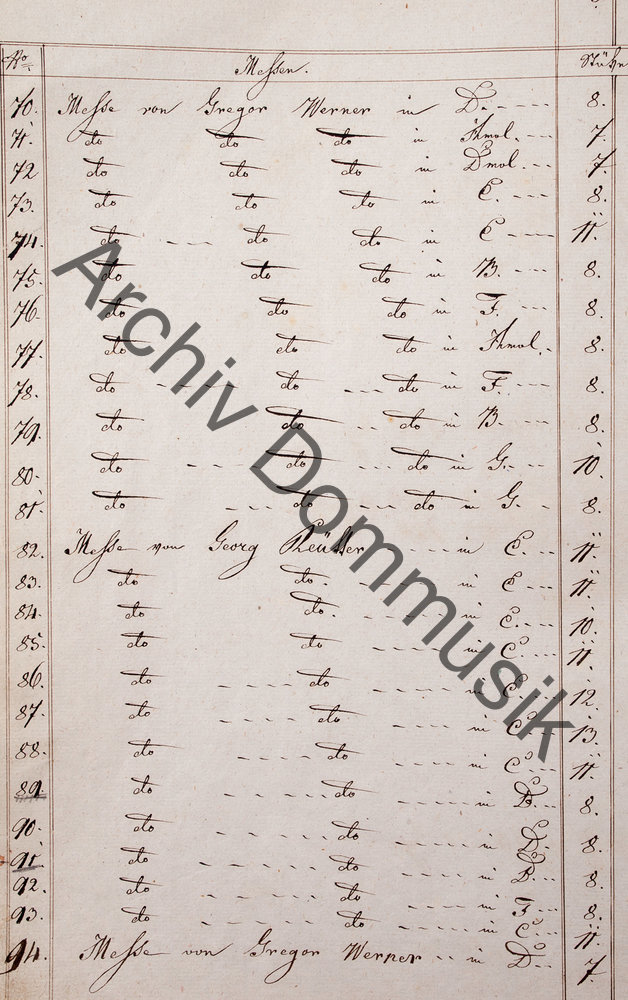 No Messen. Stücke
70. Messe von Gregor Werner in D. 8.
71. do do do in Amol. 7.
72 do do do in Dmol. 7.
73. do do do in C. 8.
74. do do do in C 11.
75. do do do in B. 8.
76. do do do in F. 8.
77. do do do in Amol. 8.
78. do do do in F. 8.
79. do do do in B. 8.
80. do do do in G. 10.
81. do do do in G. 8.
82. Messe von Georg Reütter in C. 11.
83. do do. in C 11.
84. do do. in C. 10.
85. do do in C. 11.
86. do do in C. 12.
87. do do in C. 13.
88. do do in C. 11.
89. do do in D. 8.
90. do do in D. 8.
91. do do in D. 8.
92. do do in F. 8.
93. do do in C. 11.
94. Messe von Gregor Werner in D. 7.
Archiv Dommusik